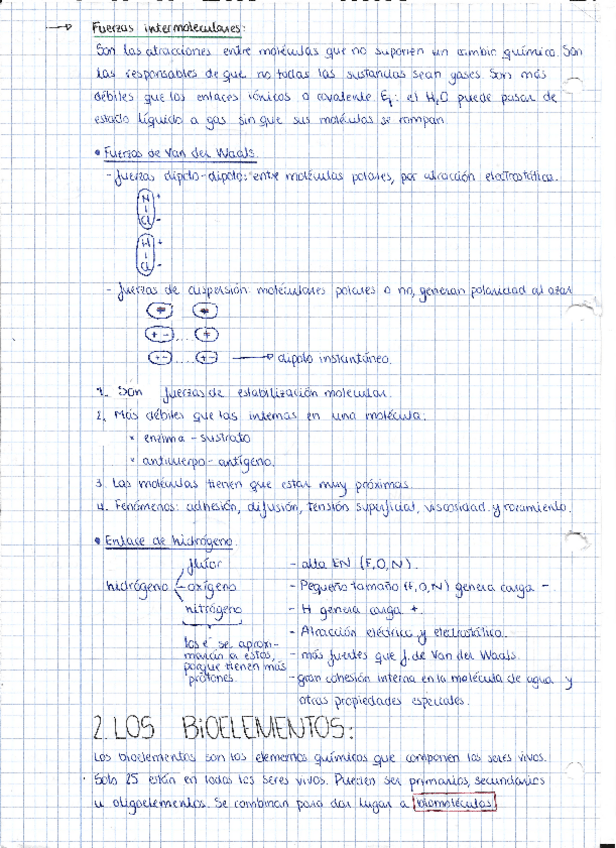 → Fuerzas intermoleculares:
Son las atracciones entre moléculas que no suponen un cambio químico. Son
las responsables de que no todas las sustancias sean gases. Son más
débiles que los enlaces iónicos o covalente Ej: el H₂O puede pasar de
estado líquido a gas sin que sus moléculas se rompan.
• Fuerzas de Van der Waals.
- fuerzas dipolo-dipolo: entre moléculas polares, por atracción electrostática.
H +
|
Cl -
H +
|
Cl -
- fuerzas de dispersión moléculares polares o no, generan polaridad al azar
+ +
+ - ... +
+ - ... + - → dipolo instantáneo.
1. Son fuerzas de estabilización molecular.
2. Más débiles que las internas en una molécula:
* enzima - sustrato
* anticuerpo - antígeno.
3. Las moléculas tienen que estar muy próximas.
4. Fenómenos: adhesión, difusión, tensión superficial, viscosidad y rozamiento.
• Enlace de hidrógeno.
flúor - alta EN (F, O, N).
hidrógeno oxígeno - Pequeño tamaño (F, O, N) genera carga -.
nitrógeno - H genera carga +.
los e⁻ se aproxi- - Atracción eléctrica y electrostática.
marán a estos, - más fuertes que f. de Van der Waals.
porque tienen más
protones. - gran cohesión interna en la molécula de agua y
otras propiedades especiales.
2. LOS BIOELEMENTOS:
Los bioelementos son los elementos químicos que componen los seres vivos.
Solo 25 están en todos los seres vivos. Pueden ser primarios, secundarios
u oligoelementos. Se combinan para dar lugar a biomoléculas